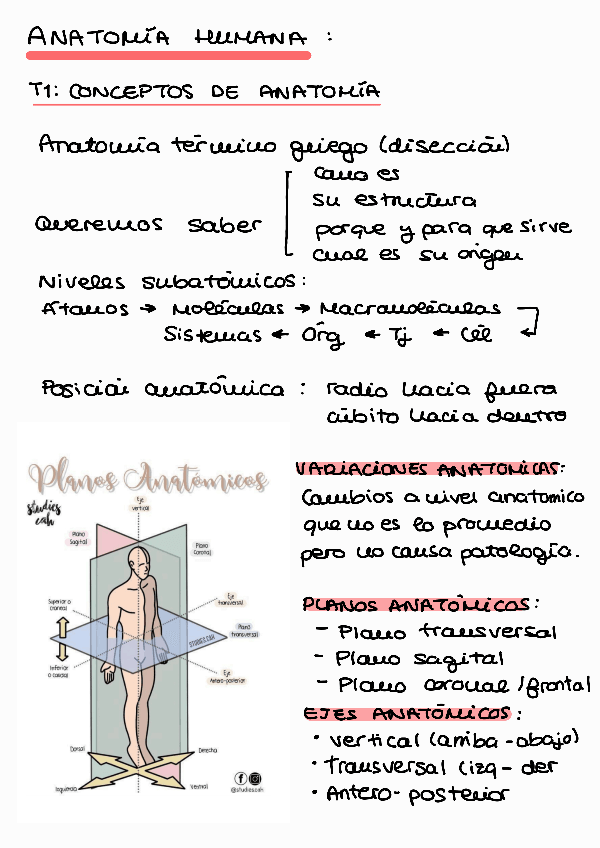 ANATOMÍA HUMANA :
T1: CONCEPTOS DE ANATOMÍA
Anatomía término griego (disección)
Queremos saber
como es
su estructura
porque y para que sirve
cual es su origen
Niveles subatómicos:
Átomos → Moléculas → Macromoléculas
Sistemas ← Órg ← Tj ← Cél ←
Posición anatómica : radio hacia fuera
cúbito hacia dentro
Planos Anatómicos
studies
cah
Eje
vertical
Plano
Sagital
Plano
Coronal
Superior o
craneal
Eje
transversal
Plano
transversal
STUDIES.CAH
Inferior
o caudal
Eje
Antero-posterior
Dorsal
Derecha
Izquierda
Ventral
@studies.cah
VARIACIONES ANATOMICAS:
Cambios a nivel anatomico
que no es lo promedio
pero no causa patología.
PLANOS ANATÓMICOS:
- Plano transversal
- Plano sagital
- Plano coronal /frontal
EJES ANATÓMICOS:
• vertical (arriba-abajo)
• Transversal (izq- der
• Antero- posterior